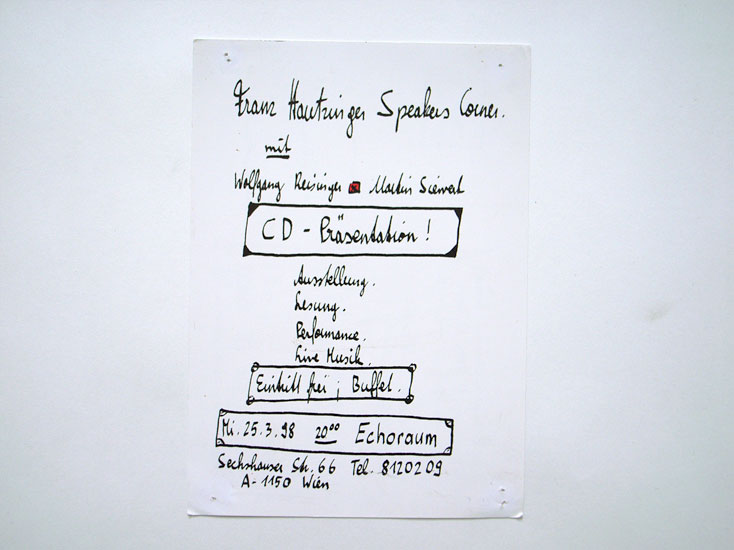 Franz Hautzinger Speakers Corner.
mit
Wolfgang Reisinger Martin Siewert
CD - Präsentation!
Ausstellung.
Lesung.
Performance.
Live Musik.
Eintritt frei ; Buffet.
Mi. 25.3.98 20⁰⁰ Echoraum
Sechshauser Str. 66 Tel. 8120209
A-1150 Wien